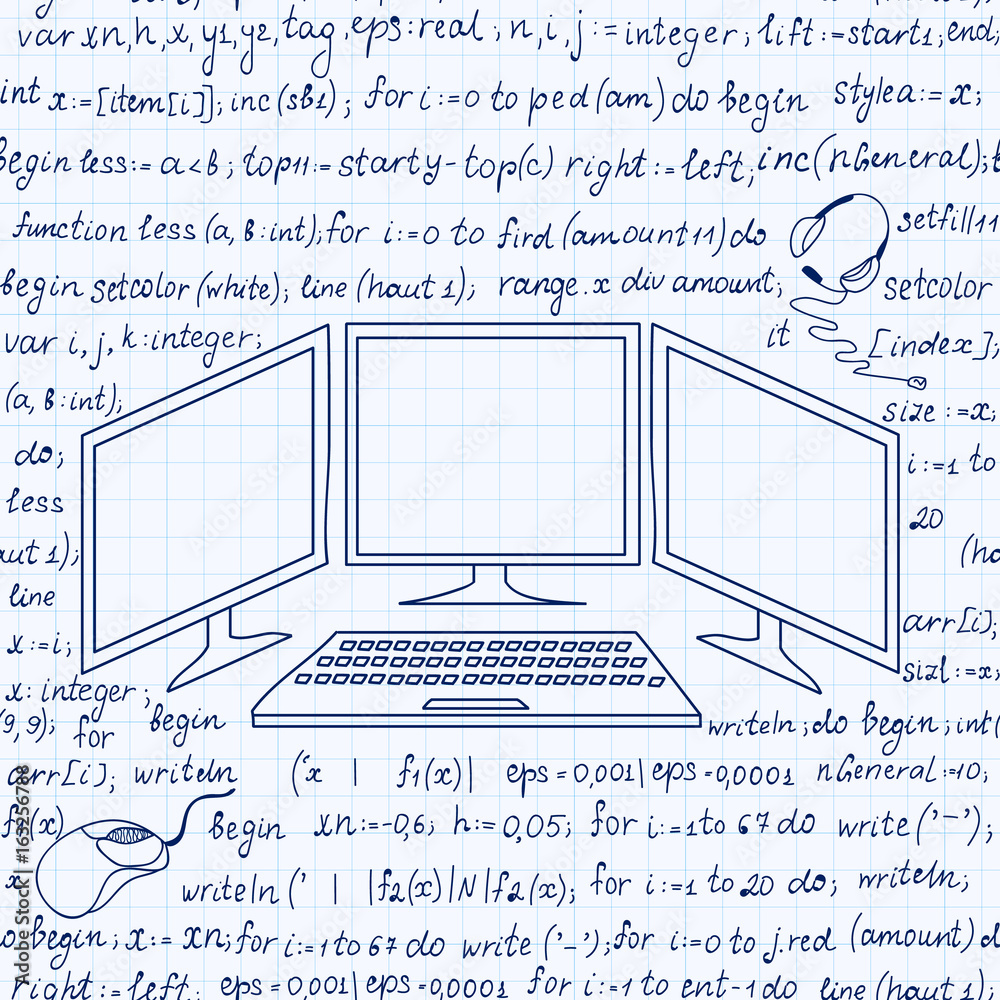 var xn, h, x, y1, y2, tag, eps:real; n, i, j:=integer; lift:=start1; end;
int x:=[item[i]]; inc(sb1); for i:=0 to ped(am) do begin stylea:= x;
begin less:= a<b; top11:= starty-top(c) right:= left; inc(nGeneral);
function less (a, b:int); for i:=0 to find (amount11) do setfill11
begin setcolor (white); line (haut1); range.x div amount; setcolor
var i, j, k:integer; it [index];
(a, b:int); size :=x;
do; i:=1 to
less 20
aut1); (ha
line
arr[i];
x:=i; sizl:=x;
x: integer;
(9, 9); for begin writeln; do begin; int(
arr[i]; writeln ('x | f1(x)| eps=0,001| eps=0,0001 nGeneral:=10;
f1(x) begin xn:=-0,6; h:=0,05; for i:=1 to 67 do write('-');
x writeln (' | |f2(x)|N|f2(x); for i:=1 to 20 do; writeln;
do begin; x:= xn; for i:=1 to 67 do write ('-'); for i:=0 to j.red (amount) d
right:=left; eps=0,001| eps=0,0001 for i:=1 to ent-1 do line (haut1);
Adobe Stock | #163256788